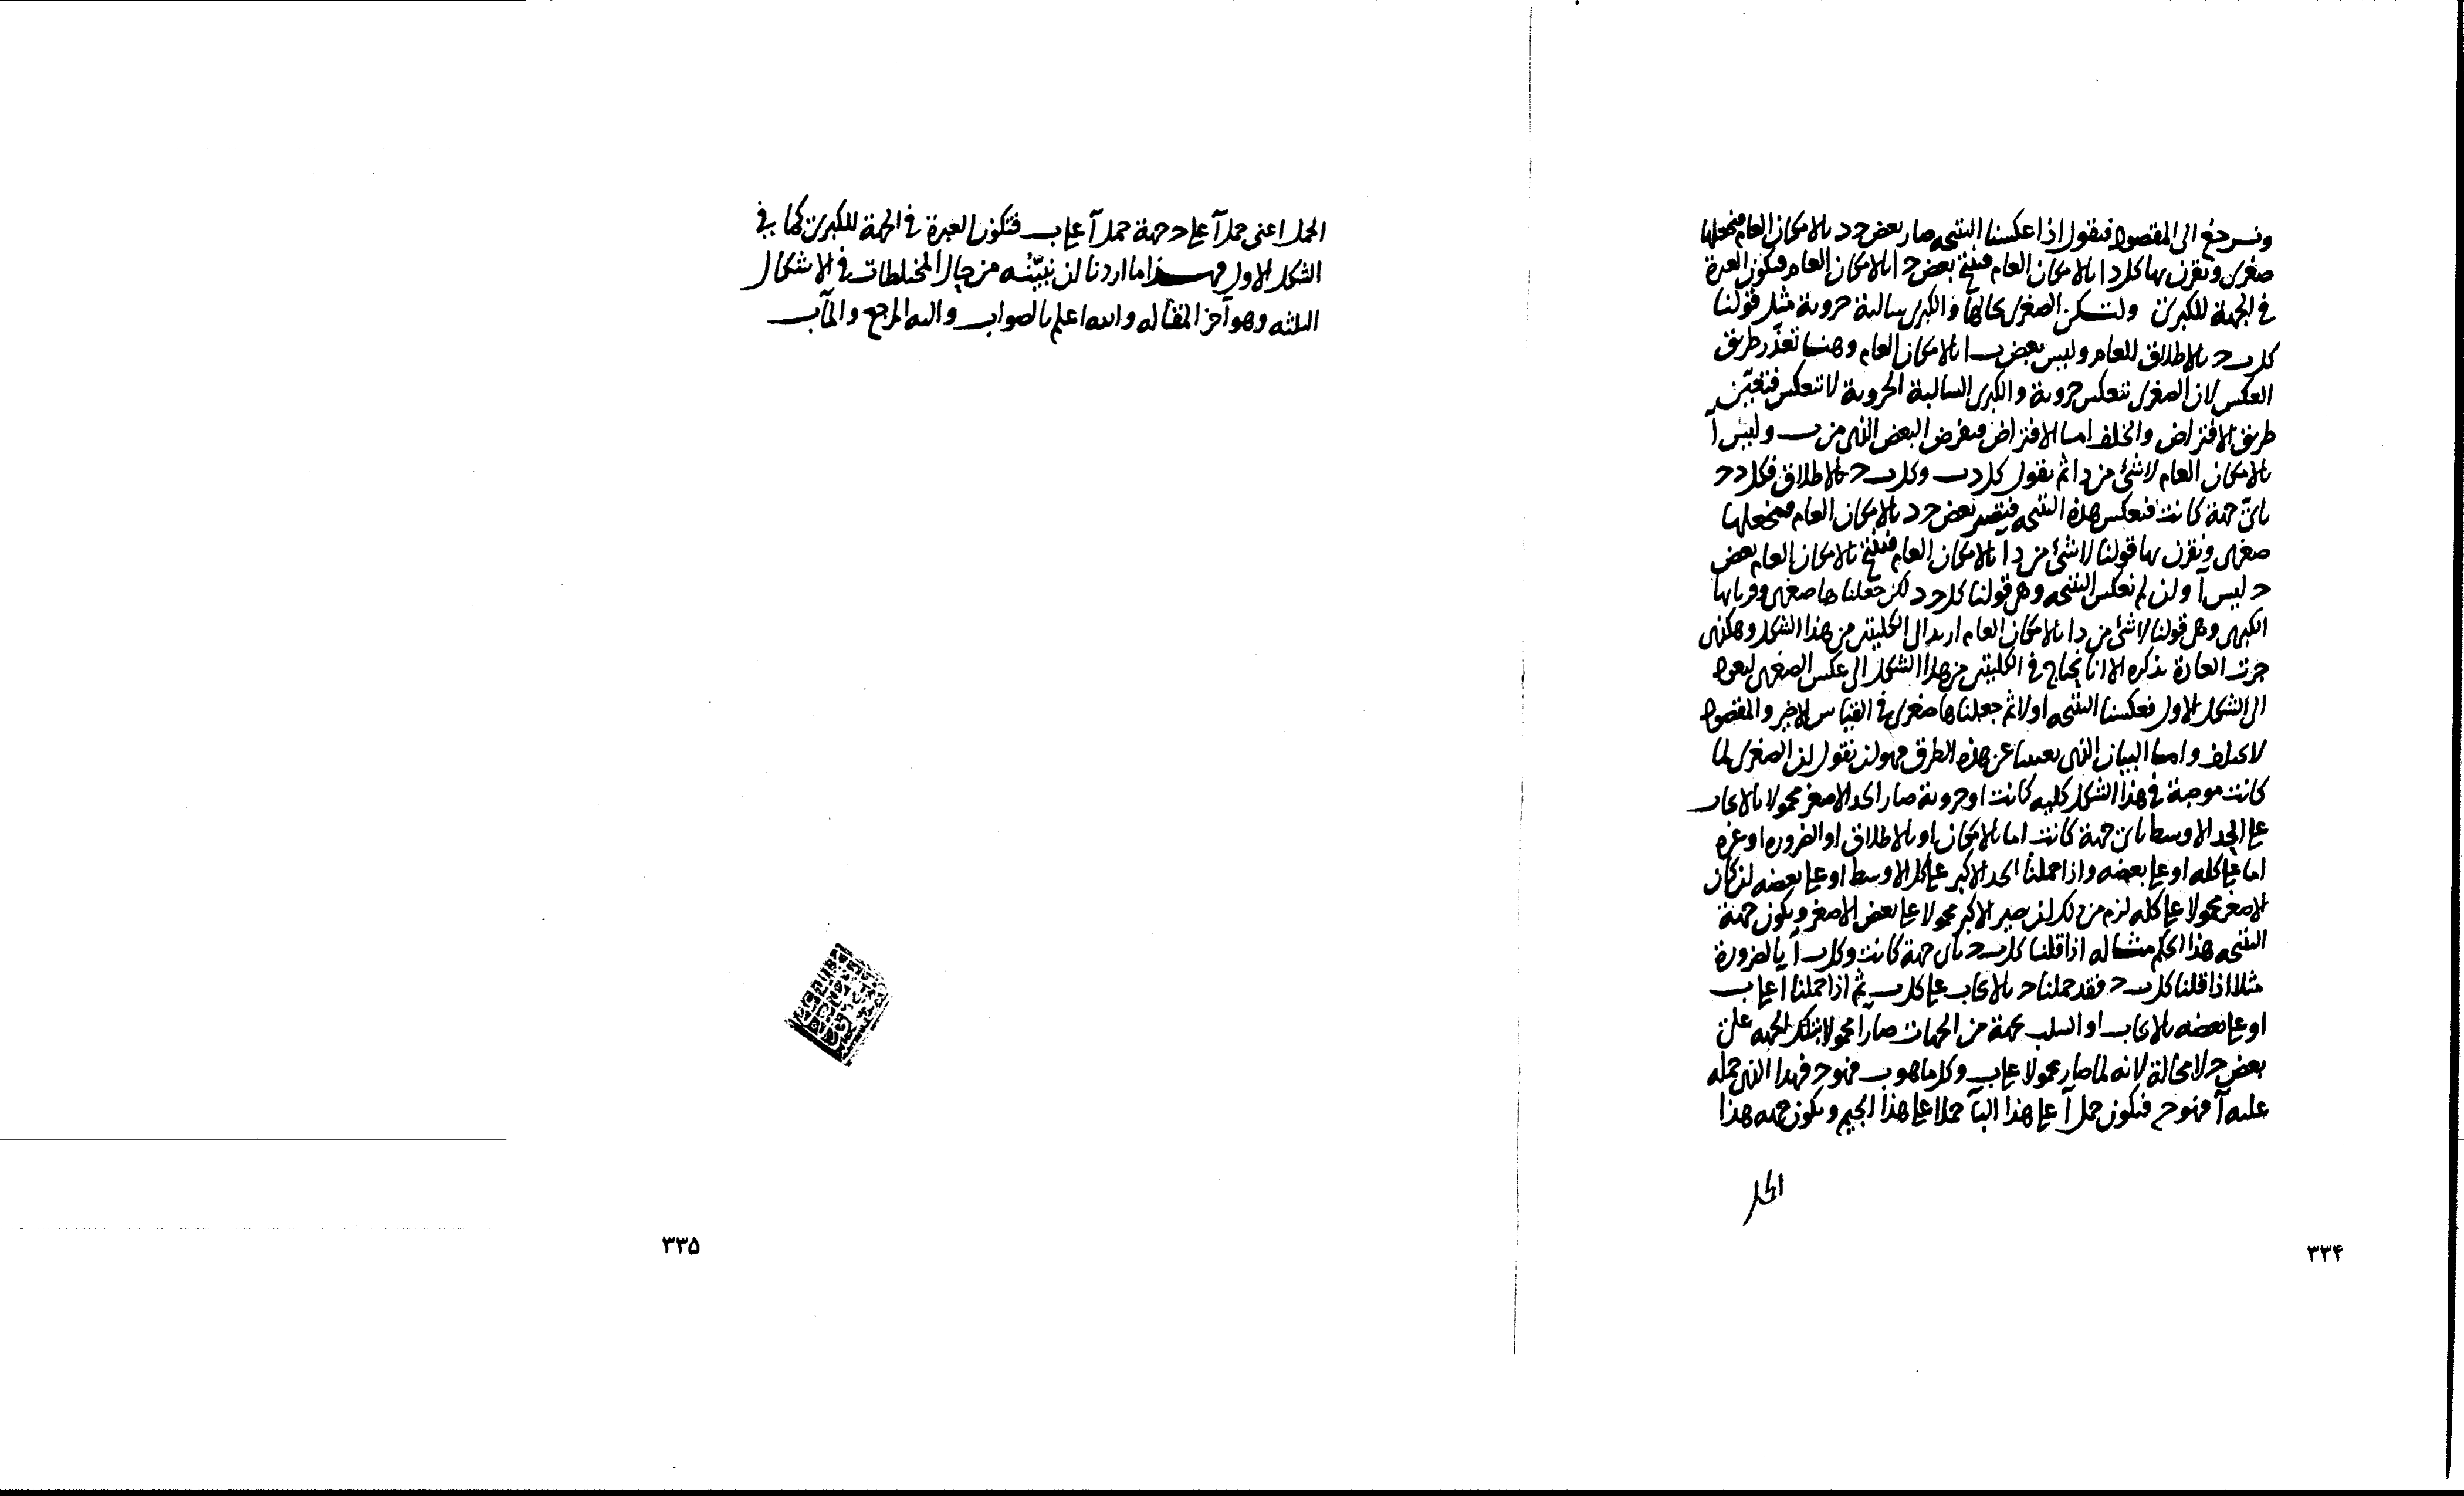 ونرجع الى المقصود فنقول اذا عكسنا النتيجه صار بعض ح د بالامكان العام فنجعلها
صغرى ونقرن بها كل د ا بالامكان العام فينتج بعض ح ا بالامكان العام فيكون العبرة
في الجهة للكبرى ولتكن الصغرى بحالها والكبرى سالبة جزوية مثل قولنا
كل ب ح بالاطلاق العام وليس بعض ب ا بالامكان العام وهنا تعذر طريق
العكس لان الصغرى تنعكس جزوية والكبرى السالبة الجزوية لا تنعكس فتعين
طريق الافتراض والخلف اما الافتراض فيفرض البعض الذي من ب وليس آ
بالامكان العام لا شئ من د ا ثم نقول كل د ب وكل ب ح بالاطلاق فكل د ح
باى جهة كانت فنعكس هذه النتيجه فيصير بعض ح د بالامكان العام فنجعلها
صغرى ونقرن بها قولنا لا شئ من د آ بالامكان العام فينتج بالامكان العام بعض
ح ليس آ وان لم نعكس النتيجه وهى قولنا كل د ح لكن جعلناها صغرى وقرنا بها
الكبرى وهى قولنا لا شئ من د ا بالامكان العام ارتد الى الكليتين من هذا الشكل وهكذى
جرت العادة بذكره الا انا نحتاج في الكليتين من هذا الشكل الى عكس الصغرى ليعود
الى الشكل الاول فعكسنا النتيجه اولا ثم جعلناها صغرى في القياس الاخير والمقصود
لا يختلف واما البيان الذى يغنينا عن هذه الطرق فهو ان نقول ان الصغرى لما
كانت موجبة في هذا الشكل كليه كانت او جزوية صار الحد الاصغر محمولا بالايجاب
على الحد الاوسط باى جهة كانت اما بالامكان او بالاطلاق او الضروره او غيره
اما على كله او على بعضه واذا حملنا الحد الاكبر على كل الاوسط او على بعضه ان كان
الاصغر محمولا على كله لزم من ذلك ان يصير الاكبر محمولا على بعض الاصغر ويكون جهة
النتيجه هذا الحكم مثاله اذا قلنا كل ب ح باى جهة كانت وكل ب آ بالضرورة
مثلا اذا قلنا كل ب ح فقد حملنا ح بالايجاب على كل ب ثم اذا حملنا ا على ب
او على بعضه بالايجاب او السلب بجهة من الجهات صار آ محمولا بتلك الجهه على
بعض ح لا محالة لانه لما صار محمولا على ب وكل ما هو ب فهو ح فهذا الذى حمله
عليه آ فهو ح فيكون حمل آ على هذا البآ حملا على هذا الجيم ويكون جهه هذا
الحمل
٣٣۴
الحمل اعنى حمل آ على ح جهة حمل آ على ب فتكون العبرة في الجهة للكبرى كما في
الشكل الاول فهذا ما اردنا ان نبينه من حال المختلطات في الاشكال
الثلثه وهو آخر المقاله والله اعلم بالصواب واليه المرجع والمآب
٣٣۵